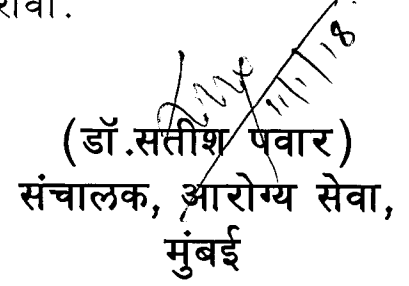 ११/१/१८
(डॉ.सतीश पवार)
संचालक, आरोग्य सेवा,
मुंबई